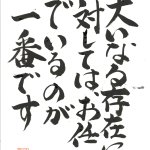 大いなる存在に
対してはお任
でいるのが
一番です